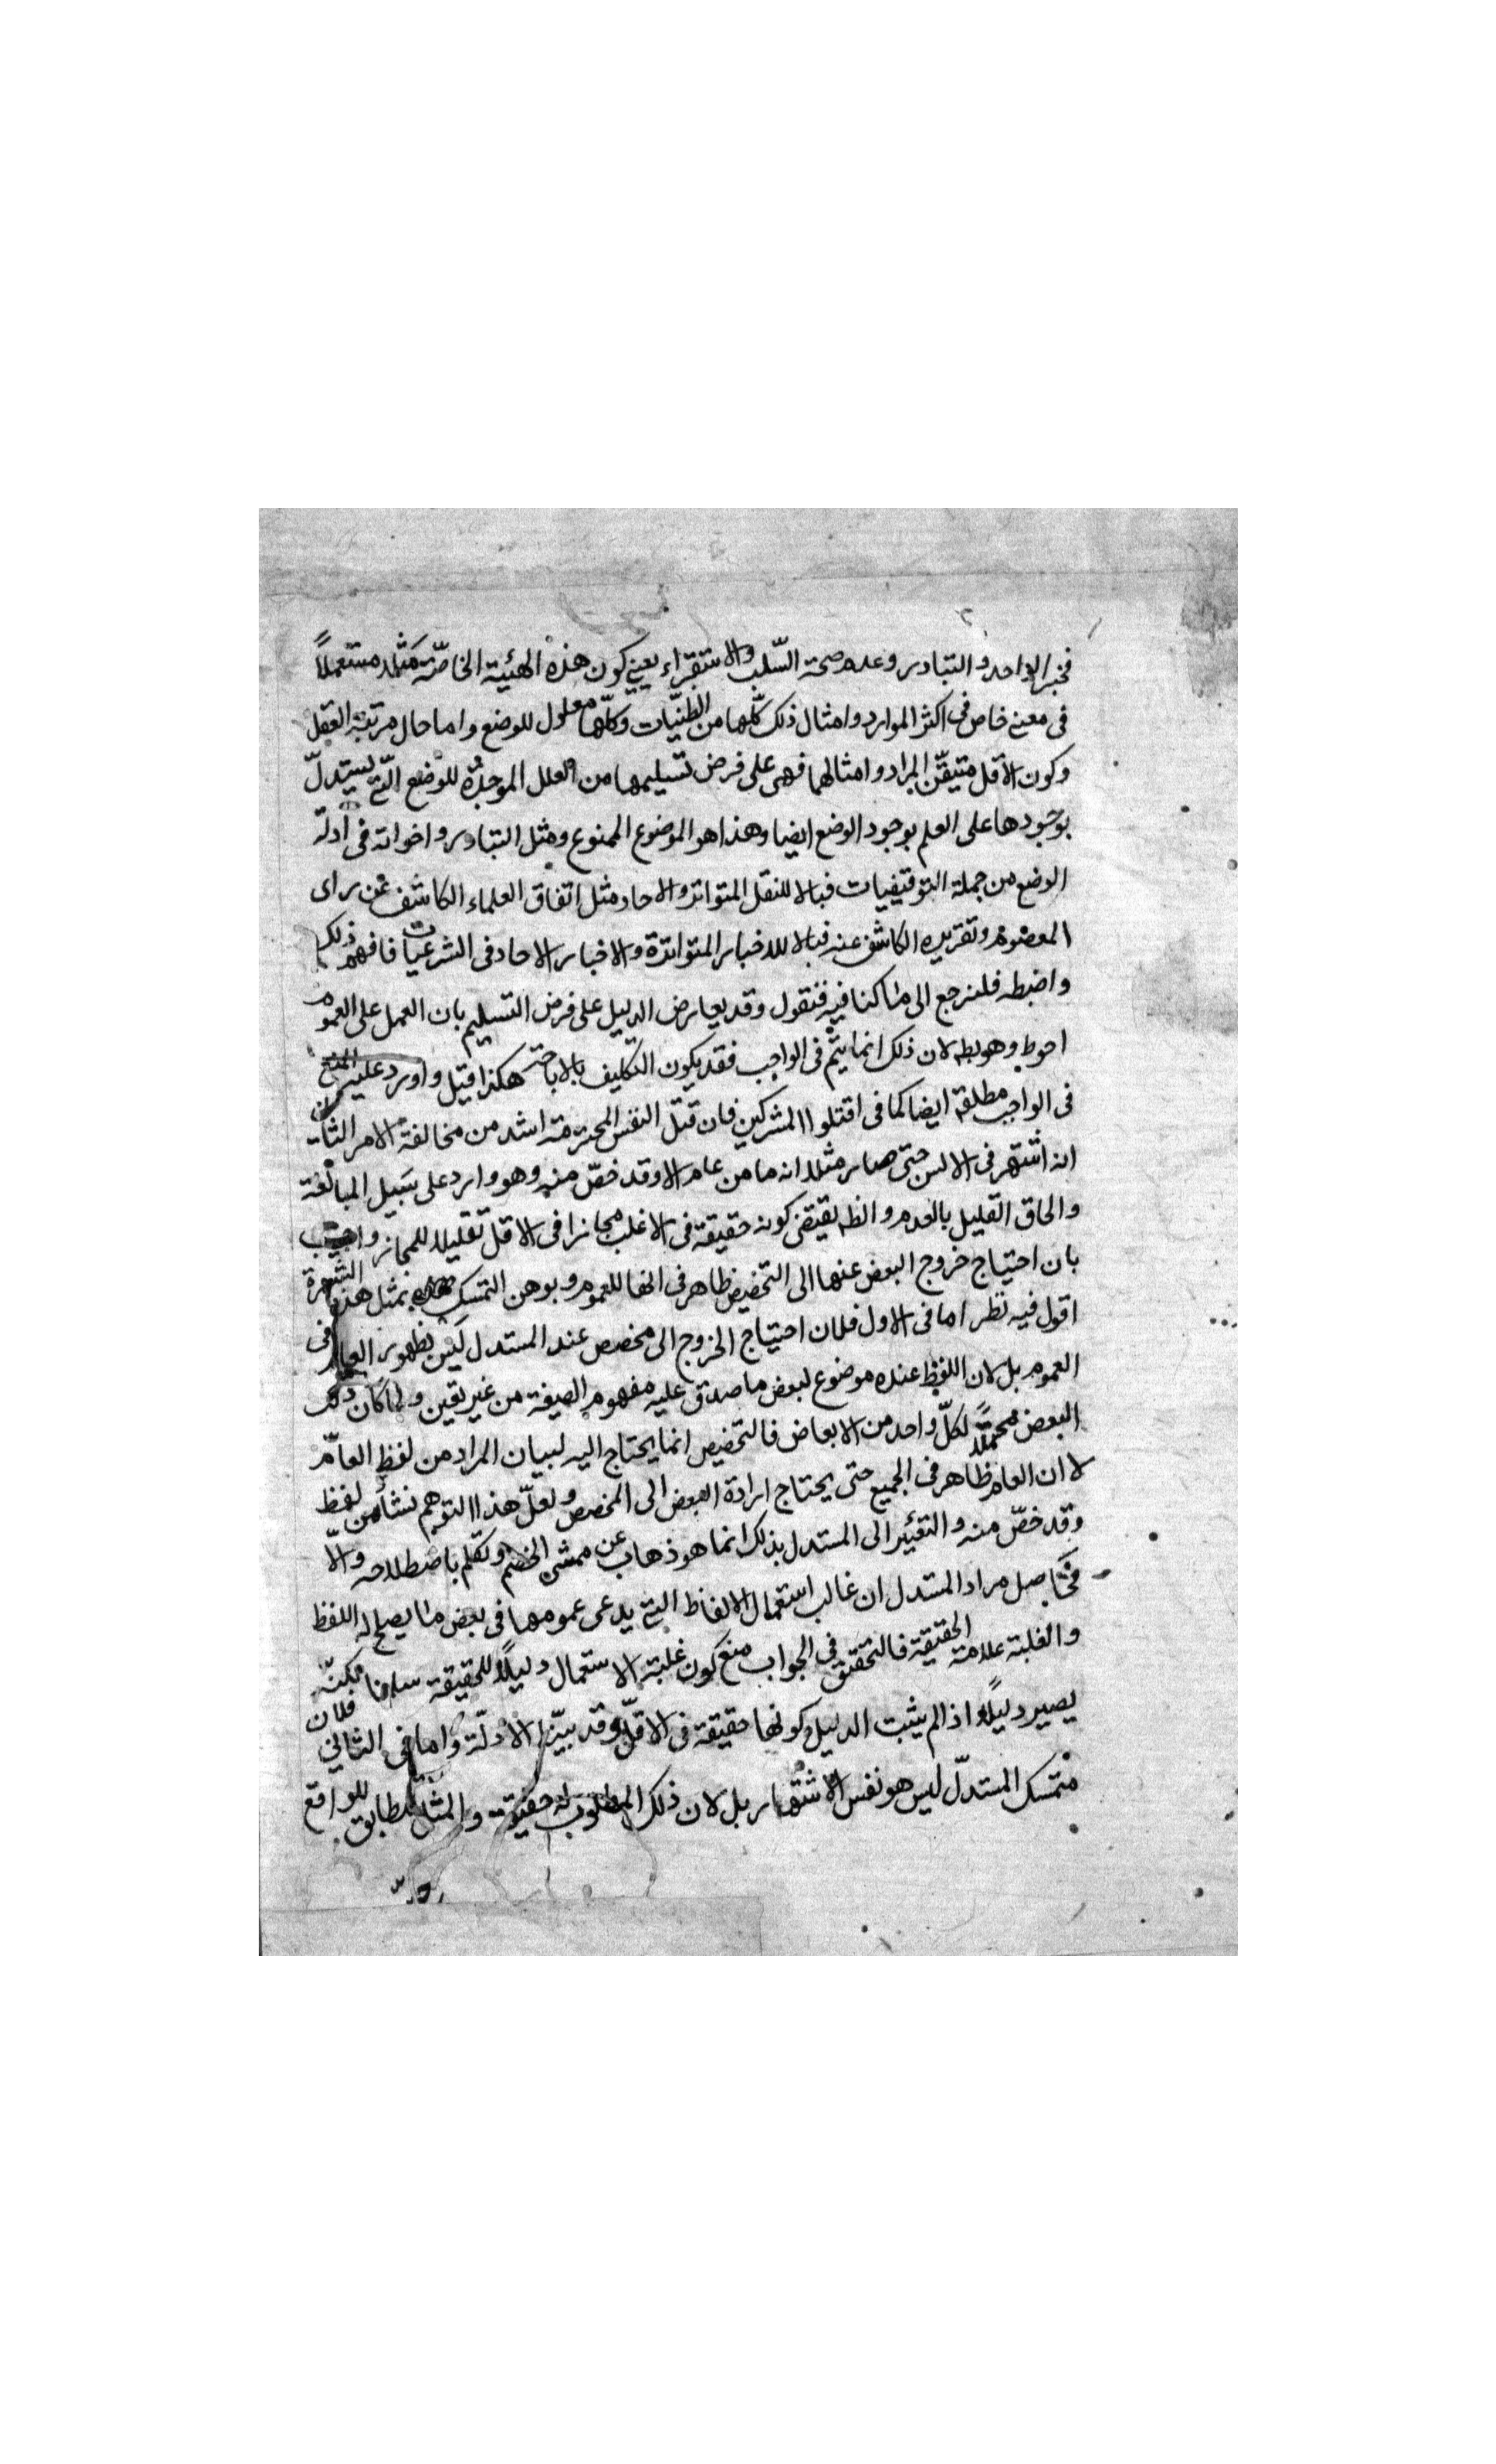 فخبر الواحد والتبادر وعدم صحة السّلب والاستقراء يعني كون هذه الهيئة الخاصّة مثلا مستعملاً
في معنى خاص في اكثر الموارد وامثال ذلك كلّها من الظنيّات وكلّها معلول للوضع واما حال مرتبة العقل
وكون الاقل متيقّن المراد وامثالها فهي على فرض تسليمها من العلل الموجدة للوضع الّتي يستدلّ
بوجودها على العلم بوجود الوضع ايضا وهذا هو الموضوع الممنوع ومثل التبادر واخواته في ادلّة
الوضع من جملة التوقيفيات قبالا للنقل المتواتر والاحاد مثل اتفاق العلماء الكاشف عن راى
المعصوم وتقريره الكاشف عنه قبالا للاخبار المتواترة والاخبار الاحاد في الشرعيات فافهم ذلك
واضبطه فلنرجع الى ما كنا فيه فنقول وقد يعارض الدليل على فرض التسليم بان العمل على العموم
احوط وهو بط لان ذلك انما يتمّ في الواجب فقد يكون التكليف بالاباحة هكذا قيل واورد عليه المنع
في الواجب مطلقا ايضا كما في اقتلوا المشركين فان قتل النفس المحترمة اشد من مخالفة الامر الثاني
انه اشتهر في الالسن حتى صار مثلا انه ما من عام الا وقد خصّ منه وهو وارد على سبيل المبالغة
والحاق القليل بالعدم والظ يقتضي كونه حقيقة في الاغلب مجازا في الاقل تقليلا للمجاز واجيب
بان احتياج خروج البعض عنها الى التخصيص ظاهر في انها للعموم وبوهن التمسك بمثل هذه الشهرة
اقول فيه نظر اما في الاول فلان احتياج الخروج الى مخصص عند المستدل ليس لظهور العام في
العموم بل لان اللفظ عنده موضوع لبعض ما صدق عليه مفهوم الصيغة من غير تعين ولما كان ذلك
البعض محتملا لكلّ واحد من الابعاض فالتخصيص انما يحتاج اليه لبيان المراد من لفظ العامّ
لا ان العام ظاهر في الجميع حتى يحتاج ارادة البعض الى المخصص ولعلّ هذا التوهم نشأ من لفظ
وقد خصّ منه والتعبير الى المستدل بذلك انما هو ذهاب عن ممشى الخصم وتكلم باصطلاحه والاّ
فحاصل مراد المستدل ان غالب استعمال الالفاظ التي يدعى عمومها في بعض ما يصلح له اللفظ
والغلبة علامة الحقيقة فالتحقيق في الجواب منع كون غلبة الاستعمال دليلاً للحقيقة سلمنا لكنّه
يصير دليلاً اذا لم يثبت الدليل كونها حقيقة في الاقلّ وقد بيّنا الادلّة واما في الثاني فلان
متمسك المستدلّ ليس هو نفس الاشتهار بل لان ذلك المطلوب له حقيقة والمثل مطابق للواقع